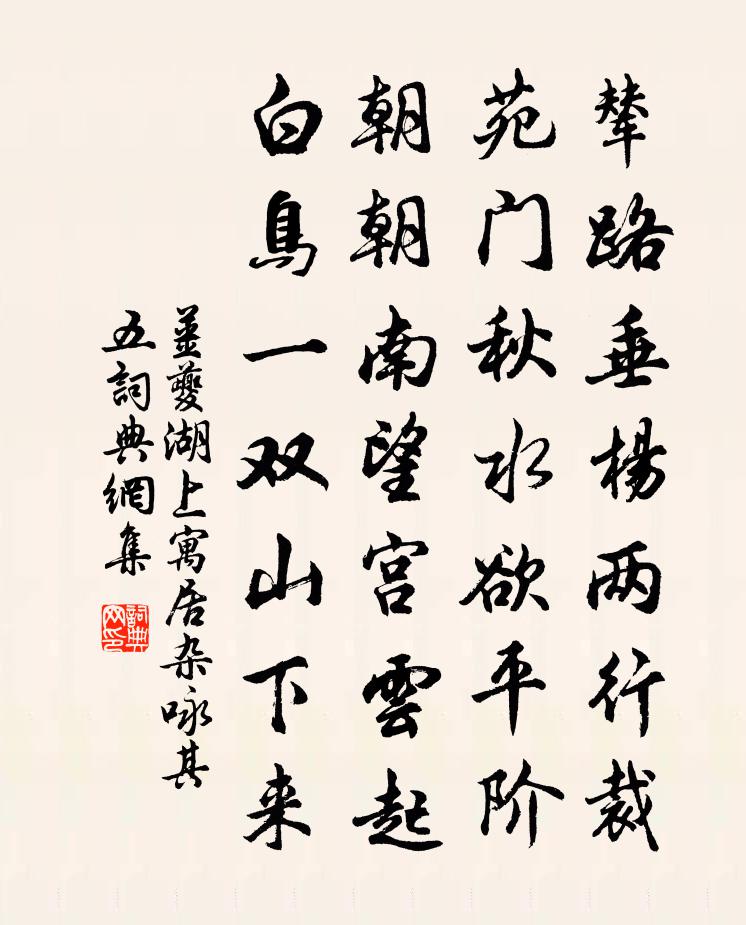 辇路垂楊两行裁
苑门秋水欲平阶
朝朝南望宫雲起
白鳥一双山下来
薑夔湖上寓居杂咏其
五詞典網集
詞典网印